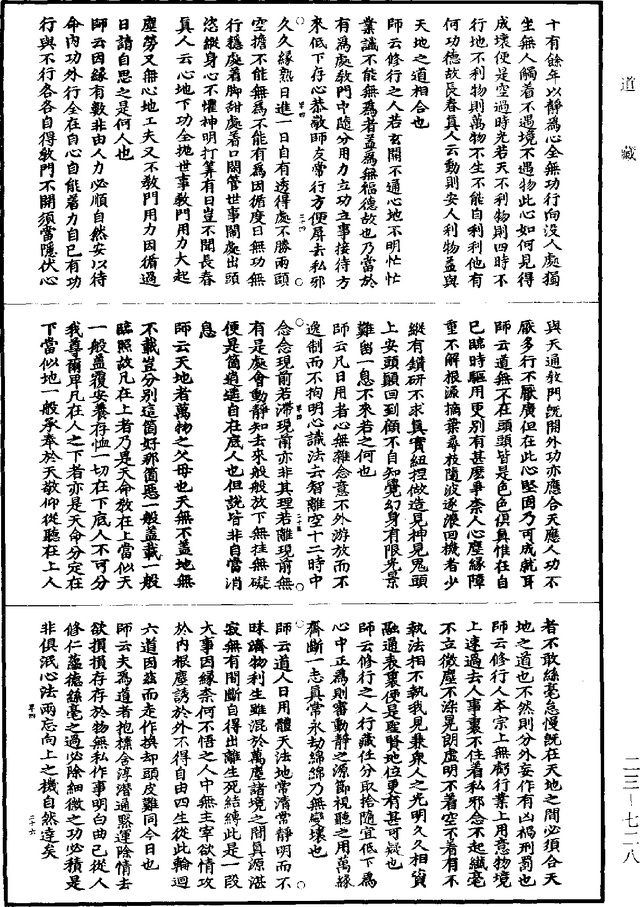 道藏
十有餘年以靜爲心全無功行向沒人處獨
坐無人觸着不遇境不遇物此心如何見得
成壞便是空過時光若天不利物則四時不
行地不利物則萬物不生不能自利利他有
何功德故長春真人云動則安人利物蓋與
天地之道相合也
師云修行之人若玄關不通心地不明忙忙
業識不能無爲者蓋爲無福德故也乃當於
有爲處教門中隨分用力立功立事接待方
來低下存心恭敬師友常行方便屏去私邪
久久緣熟日進一日自有透得處不勝兩頭
空擔不能無爲不能有爲因循度日無功無
行穩處着脚甜處着口閑管世事鬧處出頭
恣縱身心不懼神明打筭有日豈不聞長春
真人云心地下功全拋世事教門用力大起
塵勞又無心地工夫又不教門用力因循過
日請自思之是何人也
師云因緣有數非由人力必順自然安以待
命內功外行全在自心自能着力自己有功
行與不行各各自得教門不開須當隱伏心
與天通教門旣開外功亦應合天應人功不
厭多行不厭廣但在此心堅固乃可成就耳
師云道無不在頭頭皆是色色俱真惟在自
己臨時驅用更別有甚麽爭柰人心塵緣障
重不解根源摘葉尋枝隨波逐浪回機者少
縱有鑽研不求真實紐捏做造見神見鬼頭
上安頭顧回到顧不自知覺幻身有限光景
難留一息不來若之何也
師云凡日用者心無雜念意不外游放而不
逸制而不拘明心識法去智離空十二時中
念念現前若滯現前亦非其理若離現前無
有是處會動靜知去來般般放下無挂無礙
便是箇逍遙自在底人也但說皆非自當消
息
師云天地者萬物之父母也天無不蓋地無
不載豈分別這箇好那箇惡一般蓋載一般
臨照故凡在上者乃是天命教在上當似天
一般蓋覆安養存恤一切在下底人不可分
我尊爾卑凡在人之下者亦是天命分定在
下當似地一般承奉於天敬仰從聽在上人
者不敢絲毫怠慢旣在天地之間必須合天
地之道也不然則分外妄作有凶禍刑罰也
師云修行人本宗上無虧行業上用意物境
上速過去人事裏不住着私邪念不起纖毫
不立微塵不染晃朗虛明不着空不着有不
執法相不執我見兼衆人之光明久久相資
融通表裏便是聖賢地位更有甚可疑也
師云修行之人行藏任分取捨隨宜低下爲
心中正爲則審動靜之源節視聽之用萬緣
齊斷一志真常永劫綿綿乃無變壞也
師云道人日用體天法地常清常靜明而不
昧濟物利生雖混於萬塵諸境之間真源湛
寂無有間斷自得出離生死結縛此是一段
大事因緣柰何不悟之人中無主宰欲情攻
於內根塵誘於外不得自由四生從此輪迴
六道因茲而走作換却頭皮難同今日也
師云夫爲道者抱樸含淳潛通默運除情去
欲損損存存於物無私作事明白曲己從人
修仁蘊德絲毫之過必除細微之功必積是
非俱泯心法兩忘向上之機自然達矣
二三—七二八